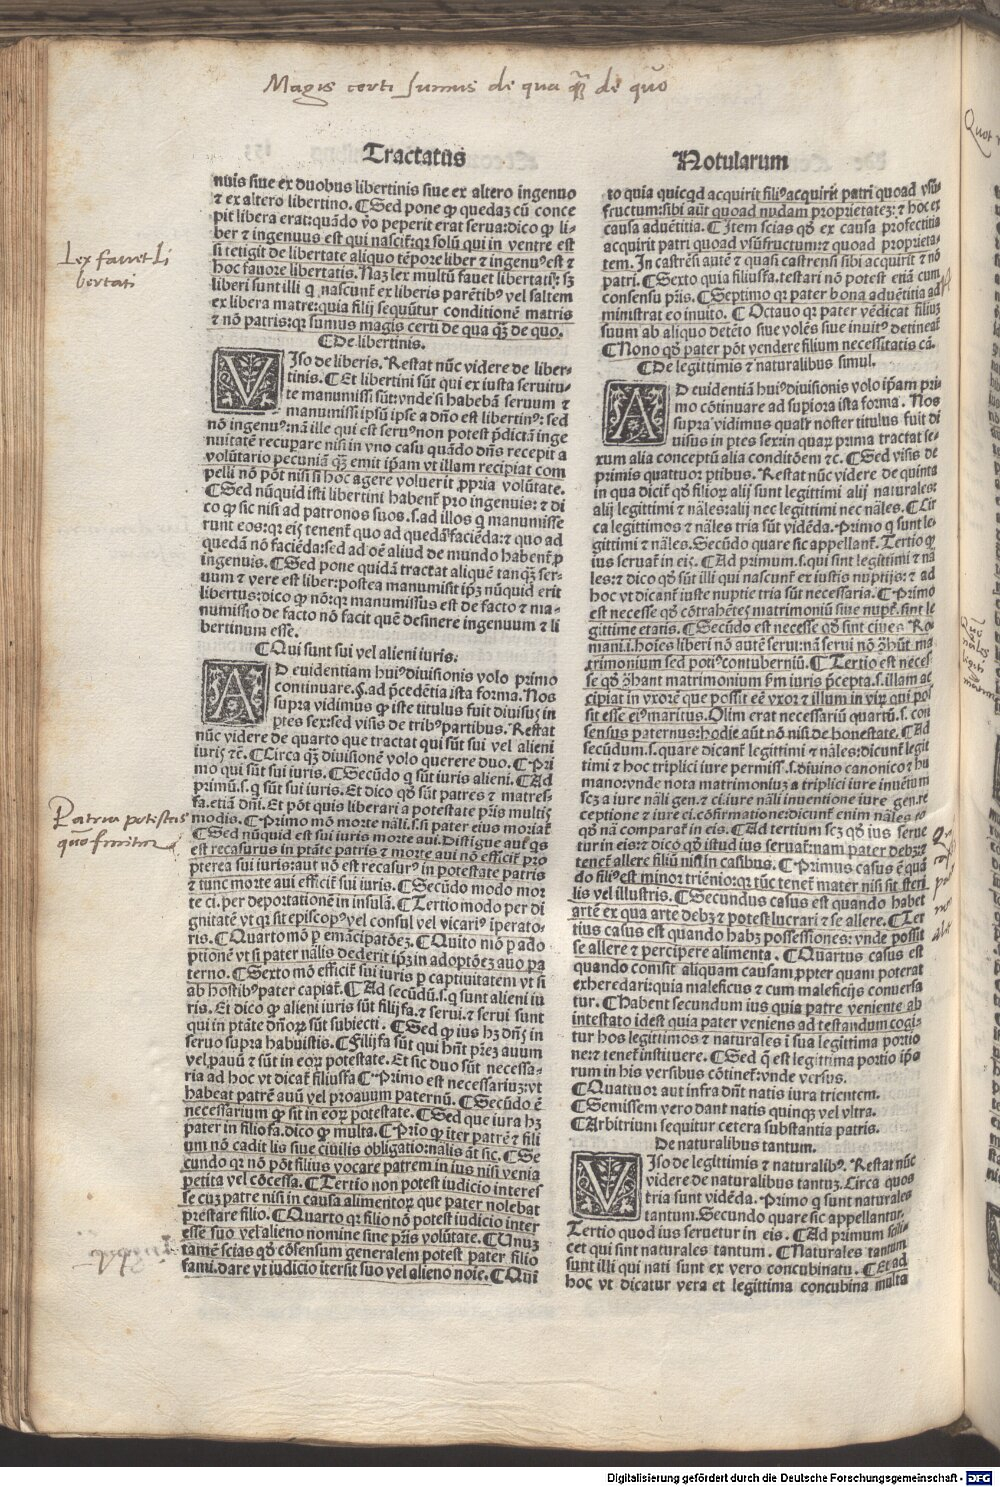 Magis certi sumus de qua qȝ de quo
Tractatus
Notularum
Lex favet Li
bertati
nuis siue ex duobus libertinis siue ex altero ingenuo
⁊ ex altero libertino. ¶Sed pone ꝙ quedaȝ cū conce
pit libera erat: quādo ṽo peperit erat serua: dico ꝙ li-
ber ⁊ ingenuus est qui nascit̃: qꝛ solū qui in ventre est
si tetigit de libertate aliquo tēpore liber ⁊ ingenuꝰ est ⁊
hoc fauore libertatis. Naȝ lex multū fauet libertati: sȝ
liberi sunt illi q̄ nascunt̃ ex liberis parētibꝰ vel saltem
ex libera matre: quia filij sequūtur conditionē matris
⁊ nō patris: qꝛ sumus magis certi de qua qȝ̄ de quo.
¶De libertinis.
VIso de liberis. Restat nūc videre de liber-
tinis. ¶Et libertini sūt qui ex iusta seruitu-
te manumissi sūt: vnde si habebā seruum ⁊
manumissi ipsū ipse a dn̄o est libertinꝰ: sed
nō ingenuꝰ: nā ille qui est seruꝰ non potest p̄dictā inge
nuitatē recuꝑare nisi in vno casu quādo dn̄s recepit a
volūtario pecuniā qȝ̄ emit ip̄am vt illam recipiat com
pelli nō pōt nisi si hoc agere voluerit ꝓpria volūtate.
¶Sed nūquid isti libertini habent̃ pro ingenuis: ⁊ di
co ꝙ sic nisi ad patronos suos .s. ad illos q̄ manumisse
runt eos: qꝛ eis tenent̃ quo ad quedā faciēda: ⁊ quo ad
quedā nō faciēda: sed ad oē aliud de mundo habent̃ ꝓ
ingenuis. ¶Sed pone quidā tractat aliquē tanqȝ ser-
uum ⁊ vere est liber: postea manumisit ipȝ nūquid erit
libertus: dico ꝙ nō: qꝛ manumissus est de facto ⁊ ma-
numissio de facto nō facit quē desinere ingenuum ⁊ li
bertinum esse.
¶Qui sunt sui vel alieni iuris.
AD euidentiam huiꝰ diuisionis volo primo
continuare .§. ad p̄cedētia ista forma. Nos
supra vidimus ꝙ iste titulus fuit diuisus in
ptes sex: sed visis de tribꝰ partibus. Restat
nūc videre de quarto que tractat qui sūt sui vel alieni
iuris ⁊c̄. ¶Circa qȝ diuisionē volo querere duo. ¶Pri
mo qui sūt sui iuris. ¶Secūdo q̄ sūt iuris alieni. ¶Ad
primū .s. q̄ sūt sui iuris. Et dico qꝫ sūt patres ⁊ matres-
fa. etiā dn̄i. Et pōt quis liberari a potestate pr̄is multis
modis. ¶Primo mō morte nāli .s. si pater eius moriat̃
Patria potestas
quō finitur
¶Sed nūquid est sui iuris morte aui. Distigue aut qꝫ
est recasurus in ptāte patris ⁊ morte aui nō efficit̃ pro
pterea sui iuris: aut nō est recasurꝰ in potestate patris
⁊ tunc morte aui efficit̃ sui iuris. ¶Secūdo modo mor
te ci. per deportationē in insulā. ¶Tertio modo per di
gnitatē vt qꝛ sit episcopꝰ vel consul vel vicariꝰ īperato-
ris. ¶Quarto mō ꝑ emācipatōeȝ. ¶Quīto mō ꝑ ado
ptionē vt si pater nālis dederit ipȝ in adoptōeȝ auo pa
terno. ¶Sexto mō efficit̃ sui iuris ꝑ captiuitatem vt si
ab hostibꝰ pater capiat̃. ¶Ad secūdū .s. q̄ sunt alieni iu
ris. Et dico ꝙ alieni iuris sūt filij fa. ⁊ serui. ⁊ serui sunt
qui in ptāte dn̄oꝝ sūt subiecti. ¶Sed ꝙ ius hȝ dn̄s in
seruo supra habuistis. ¶Filij fa sūt qui hn̄t pr̄eȝ auum
vel ꝓauū ⁊ sūt in eoꝝ potestate. Et sic duo sūt necessa-
ria ad hoc vt dicat̃ filiusfa ¶Primo est necessariuȝ: vt
habeat patrē auū vel proauum paternū. ¶Secūdo ē
necessarium ꝙ sit in eoꝝ potestate. ¶Sed que iura hȝ
pater in filio fa. dico ꝙ multa. ¶Prīo qꝛ iter patrē ⁊ fili
um nō cadit lis siue ciuilis obligatio: nālis āt sic. ¶Se
cundo qꝛ nō pōt filius vocare patrem in ius nisi venia
petita vel cōcessa. ¶Tertio non potest iudicio interes
se cuȝ patre nisi in causa alimentoꝝ que pater nolebat
prestare filio. ¶Quarto qꝛ filio nō potest iudicio inter
esse suo vel alieno nomine sine pr̄is volūtate. ¶Unuȝ
tamē scias qꝫ cōsensum generalem potest pater filio
fami. dare vt iudicio itersit suo vel alieno noīe. ¶Qui
to quia quicqd acquirit filiꝰ acquirit patri quoad vsū
fructum: sibi aūt quoad nudam proprietateȝ: ⁊ hoc ex
causa aduētitia. ¶Item scias qꝫ ex causa profectitia
acquirit patri quoad vsūfructum: ⁊ quoad proprieta-
tem. In castrēsi autē ⁊ quasi castrensi sibi acquirit ⁊ nō
patri. ¶Sexto quia filiusfa. testari nō potest etiā cum
consensu pr̄is. ¶Septimo qꝛ pater bona aduētitia ad
ministrat eo inuito. ¶Octauo qꝛ pater vēdicat filiuȝ
suum ab aliquo detēto siue volēs siue inuitꝰ detineat̃
¶Nono qꝫ pater pōt vendere filium necessitatis cā.
¶De legittimis ⁊ naturalibus simul.
AD euidentiā huiꝰ diuisionis volo ip̄am pri
mo cōtinuare ad supiora ista forma. Nos
supra vidimus qualr̄ noster titulus fuit di
uisus in ptes sex: in quaꝝ prima tractat se-
xum alia conceptū alia conditōem ⁊c. ¶Sed visis de
primis quattuor ptibus. Restat nūc videre de quinta
in qua dicit̃ qꝫ filioꝝ alij sunt legittimi alij naturales:
alij legittimi ⁊ nāles: alij nec legittimi nec nāles. ¶Cir
ca legitimos ⁊ nāles tria sūt vidēda. Primo q̄ sunt le-
gittimi ⁊ nāles. Secūdo quare sic appellant̃. Tertio ꝙ
ius seruat̃ in eis. ¶Ad primum .s. qui sint legittimi ⁊ nā
les: ⁊ dico qꝫ sūt illi qui nascunt̃ ex iustis nuptijs: ⁊ ad
hoc vt dicant̃ iuste nuptie tria sūt necessaria. ¶Primo
est necesse qꝫ cōtrahētes matrimoniū siue nupt̃. sint le
gittime etatis. ¶Secūdo est necesse qꝫ sint ciues Ro
mani .i. hoīes liberi nō autē serui: nā serui nō ꝯhūt ma
trimonium sed potiꝰ contuberniū. ¶Tertio est neces-
se qꝫ ꝯhant matrimonium ẜm iuris p̄cepta .s. illam ac
cipiat in vxorē que possit eē vxor ⁊ illum in viꝝ qui pos
sit esse eiꝰ maritus. Olim erat necessariū quartū .s. con
sensus paternus: hodie aūt nō nisi de honestate. ¶Ad
secūdum .s. quare dicant̃ legittimi ⁊ nāles: dicunt̃ legit
timi ⁊ hoc triplici iure permiss. s. diuino canonico ⁊ hu
mano: vnde nota matrimoniuȝ a triplici iure inuētum
scȝ a iure nāli gen. ⁊ ci. iure nāli inuentione iure gen. re
ceptione ⁊ iure ci. cōfirmatione: dicunt̃ enim nāles eo
qꝫ nā comparat̃ in eis. ¶Ad tertium scȝ qꝫ ius serue
tur in eis: ⁊ dico qꝫ istud ius seruat̃: nam pater debȝ ⁊
tenet̃ allere filiū nisi in casibus. ¶Primus casus ē quā
do filiꝰ est minor triēnio: qꝛ tūc tenet̃ mater nisi sit steri
lis vel illustris. ¶Secundus casus est quando habet
artē ex qua arte debȝ ⁊ potest lucrari ⁊ se allere. ¶Ter
tius casus est quando habȝ possessiones: vnde possit
se allere ⁊ percipere alimenta. ¶Quartus casus est
quando comisit aliquam causam ꝓpter quam poterat
exheredari: quia maleficus ⁊ cum maleficijs conuersa
tur. ¶Habent secundum ius quia patre veniente ab
intestato idest quia pater veniens ad testandum cogi-
tur hos legittimos ⁊ naturales i sua legittima portio
ne: ⁊ tenet̃ instituere. ¶Sed q̄ est legittima portio ipo
rum in his versibus cōtinet̃: vnde versus.
¶Quattuor aut infra dn̄t natis iura trientem.
¶Semissem vero dant natis quinqȝ vel vltra.
¶Arbitrium sequitur cetera substantia patris.
De naturalibus tantum.
VIso de legittimis ⁊ naturalibꝰ. Restat nūc
videre de naturalibus tantuȝ. Circa quos
tria sunt vidēda. Primo q̄ sunt naturales
tantum. Secundo quare sic appellantur.
Tertio quod ius seruetur in eis. ¶Ad primum scili-
cet qui sint naturales tantum. ¶Naturales tantum
sunt illi qui nati sunt ex vero concubinatu. ¶Et ad
hoc vt dicatur vera et legittima concubina multa
Digitalisierung gefördert durch die Deutsche Forschungsgemeinschaft - DFG